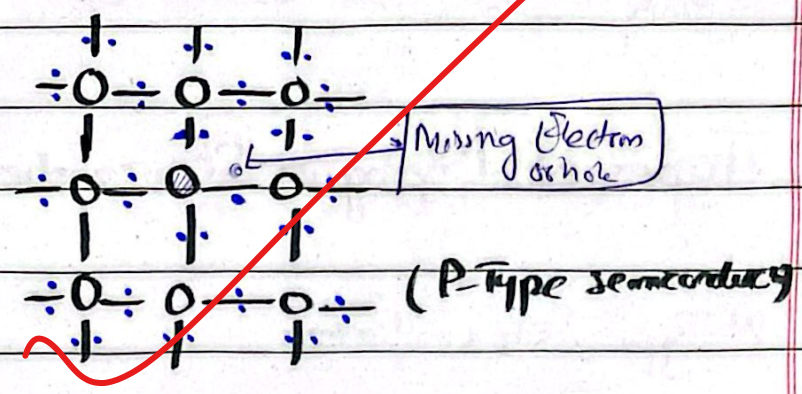 Missing Electron
or hole
(P-Type semiconduc